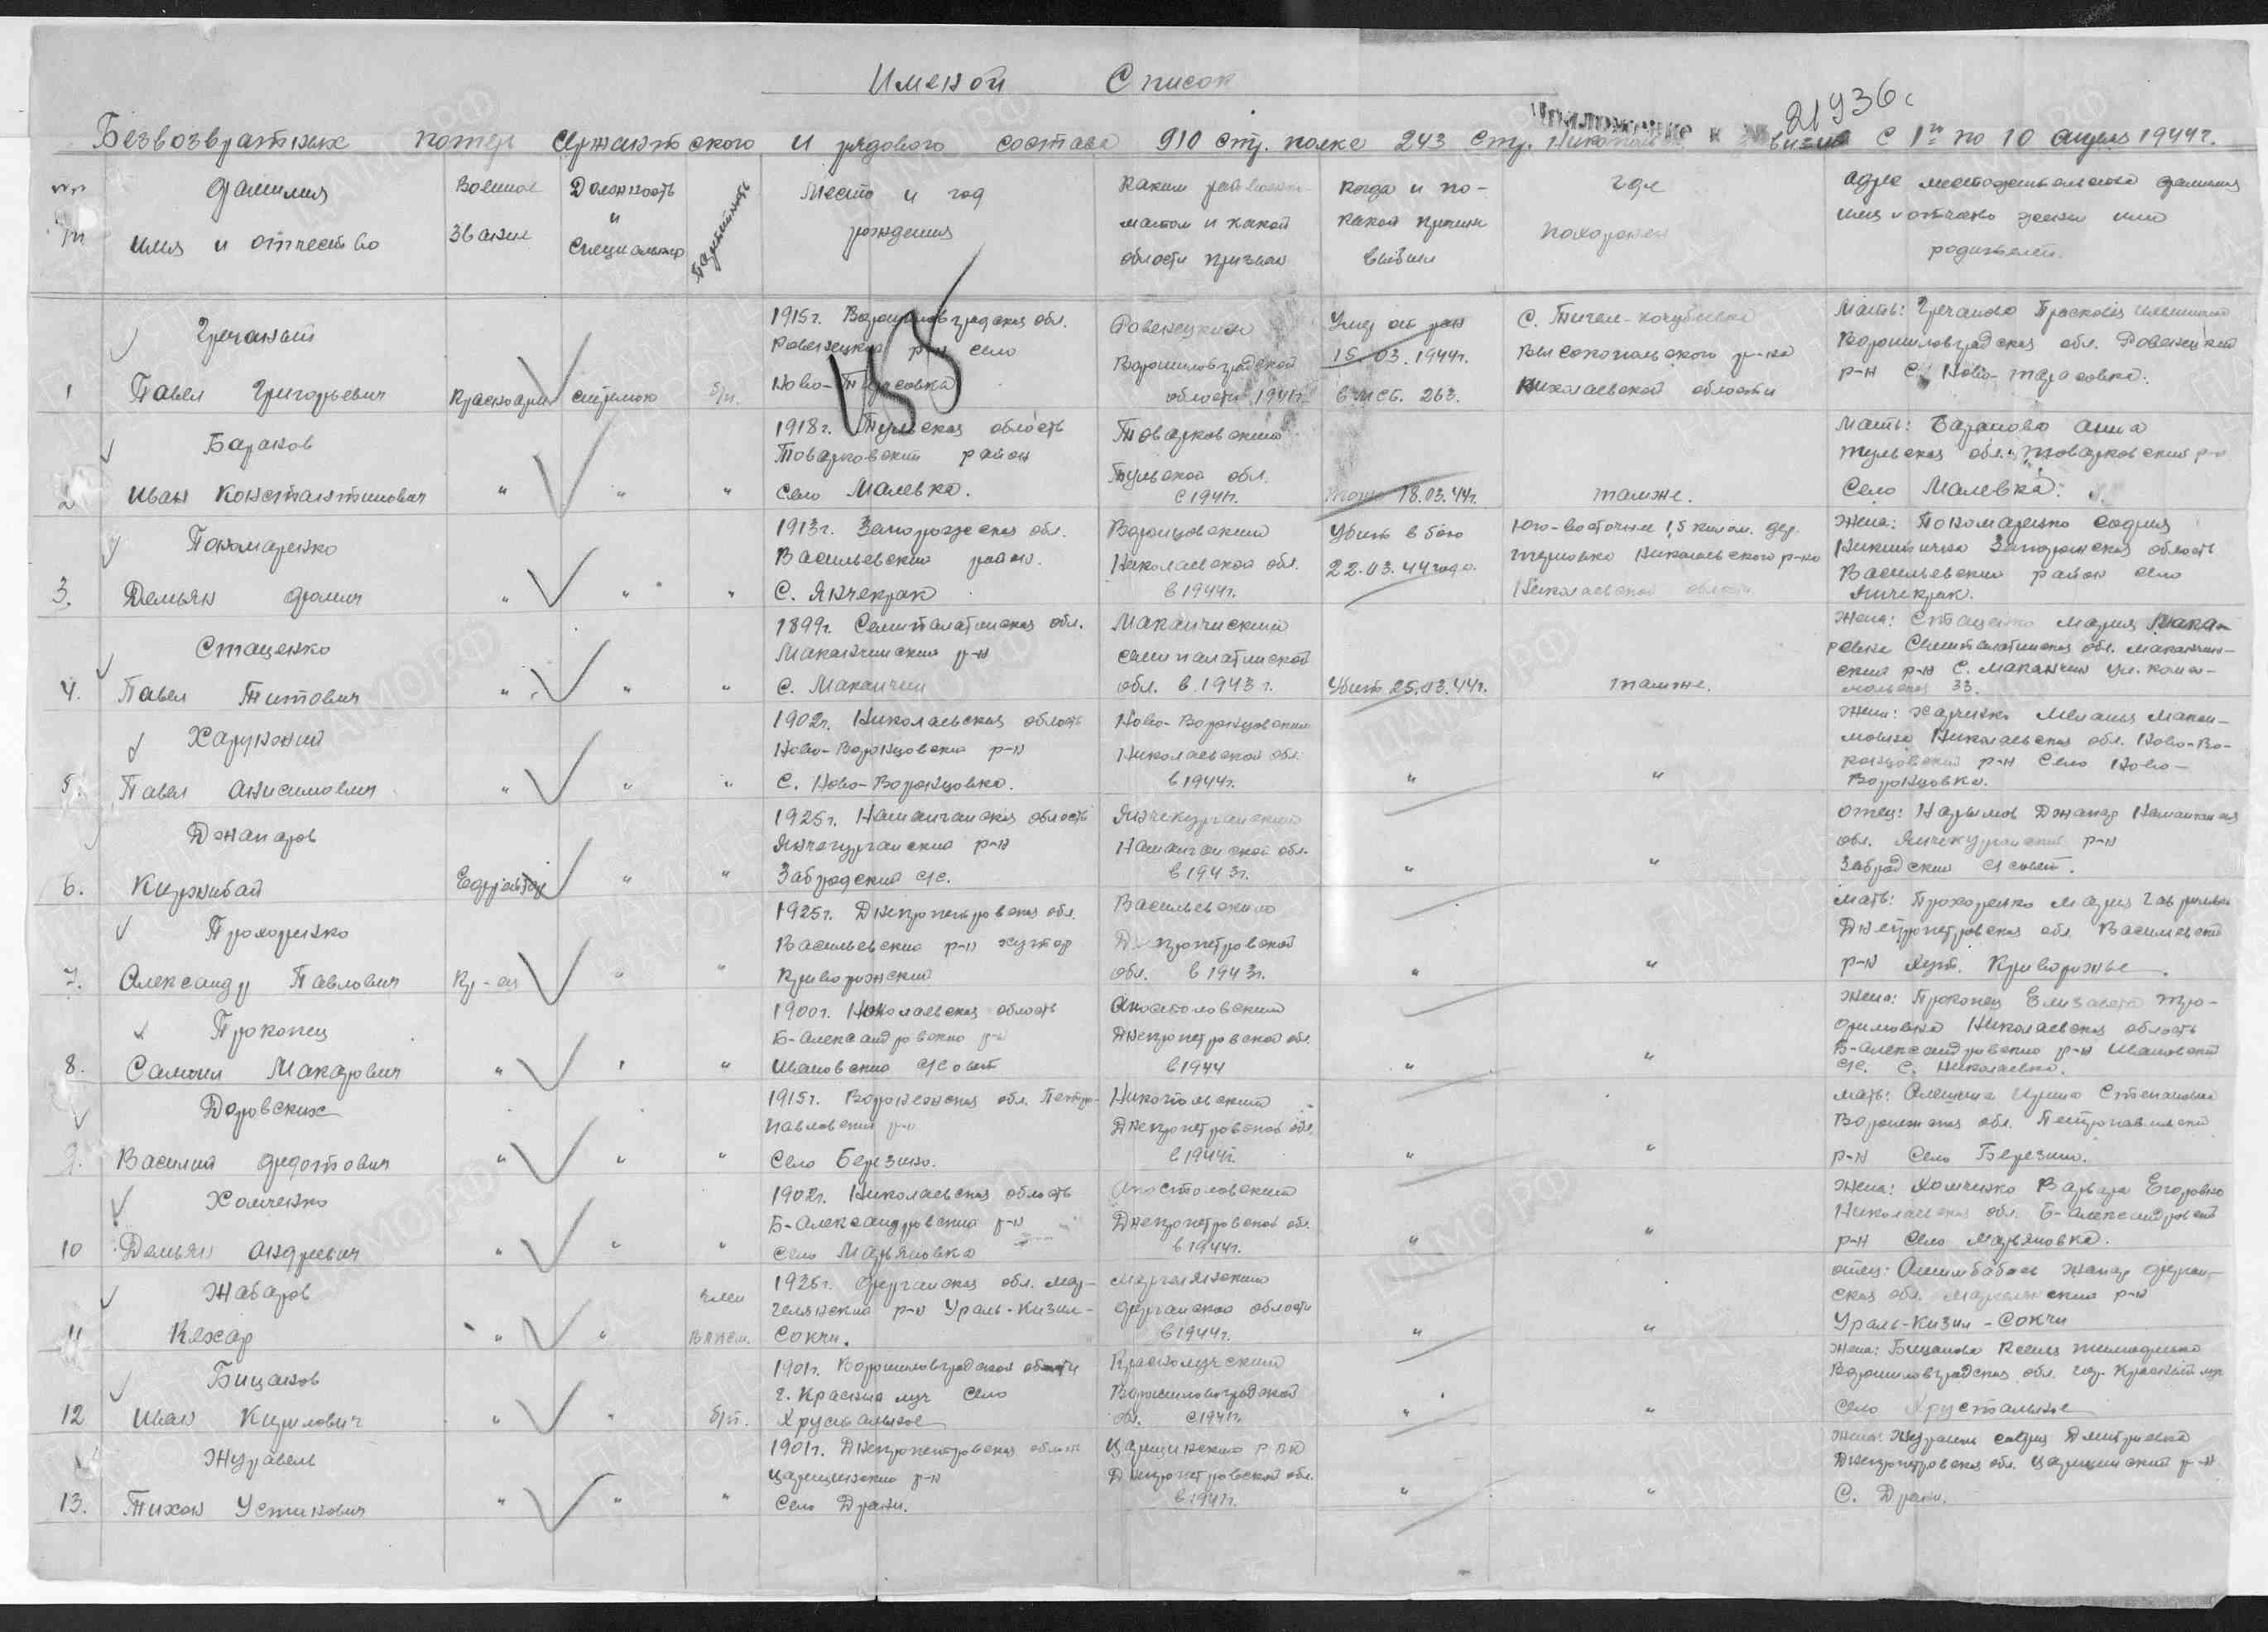 Именой Список
Приложение к №
21936с
Безвозвратных потерь сержантского и рядового состава 910 стр. полка 243 стр. Никопольск. дивизии с 1го по 10 апреля 1944г.
№№ п/п
Фамилия
имя и отчество
Военное
звание
Должность
и
специальнос
Партийность
Место и год
рождения
Каким райвоенко-
матом и какой
области призван
Когда и по-
какой причине
выбыл
Где
похоронен
Адрес местожительства фамилия
имя и отчество жены или
родителей.
115
1
Гречаный
Павел Григорьевич
Красноарм
стрелок
б/п.
1915г. Ворошиловградская обл.
Ровенецкий р-н село
Ново-Тарасовка
Ровенецким
Ворошиловградской
области 1941г.
Умер от ран
15.03.1944г.
в МСБ. 263.
С. Тигем-кочубеевка
Высокопольского р-на
Николаевской области
Мать: Гречаново Прасковья
Ворошиловградская обл. Ровенецкий
р-н С. Ново-тарасовка.
2
Баранов
Иван Константинович
" " "
1918г. Тульская область
Товарковский район
Село Малевка.
Товарковским
Тульской обл.
с 1941г.
тоже 18.03.44г.
тамже.
Мать: Баранова Анна
Тульская обл. Товарковский р-н
Село Малевка.
3.
Пономаренко
Демьян Фомич
" " "
1913г. Запорожская обл.
Васильевский район.
С. Янчекрак
Воронцовским
Николаевской обл.
в 1944г.
Убит в бою
22.03.44 года.
Юго-восточнее 1,5 килом. дер.
терновка Николаевского р-на
Николаевской области
Жена: Пономаренко София
Никитична Запорожская область
Васильевский район село
Янчекрак.
4.
Стаценко
Павел Титович
" " "
1899г. Семипалатинская обл.
Маканчинский р-н
С. Маканчи
Маканчиский
семипалатинской
обл. в 1943г.
Убит 25.03.44г.
тамже.
Жена: Стаценко Мария Мака-
ровна Семипалатинская обл. Маканчин-
ский р-н С. Маканчи ул. комсо-
мольская 33.
5.
Харунжий
Павел Анисимович
" " "
1902г. Николаевская область
Ново-Воронцовский р-н
С. Ново-Воронцовка.
Ново-Воронцовским
Николаевской обл.
в 1944г.
" "
Жена: Харченко Мелания Макси-
мовна Николаевская обл. Ново-Во-
ронцовский р-н Село Ново-
Воронцовка.
6.
Джапаров
Киржибай
Ефрейтор
" "
1925г. Наманганская область
Янгекурганский р-н
Забрадский с/с.
Янгекурганский
Наманганской обл.
в 1943г.
" "
Отец: Нарымов Джапар Наманганская
обл. Янчекурганский р-н
Забрадский с/совет.
7.
Прохоренко
Александр Павлович
Кр-ец
" "
1925г. Днепропетровская обл.
Васильевский р-н хутор
Криворожский
Васильевским
Днепропетровской
обл. в 1943г.
" "
Мать: Прохоренко Мария Гавриловна
Днепропетровская обл. Васильевский
р-н хут. Криворожье.
8.
Прокопец
Самоил Макарович
" " "
1900г. Николаевская область
Б-Александровский р-н
Ивановский с/совет
Апостоловским
Днепропетровской обл.
в 1944
" "
Жена: Прокопец Елизавета Тро-
фимовна Николаевская область
Б-Александровский р-н Ивановский
с/с. С. Николаевка.
9.
Доровских
Василий Федотович
" " "
1915г. Воронежская обл. Петро-
павловский р-н
Село Березово.
Никопольским
Днепропетровской обл.
в 1944г.
" "
Мать: Алешина Ирина Степановна
Воронежская обл. Петропавловский
р-н Село Березово.
10
Хомченко
Демьян Андреевич
" " "
1902г. Николаевская область
Б-Александровский р-н
Село Марьяновка
Апостоловский
Днепропетровской обл.
в 1944г.
" "
Жена: Хомченко Варвара Егоровна
Николаевская обл. Б-Александровский
р-н Село Марьяновка.
11
Жабаров
Кахар
" "
член
ВЛКСМ.
1925г. Ферганская обл. Мар-
гелянский р-н Ураль-Кизил-
Сокчи.
Маргелянским
Ферганской области
в 1944г.
" "
Отец: Ашимбабаев Жапар Ферган-
ская обл. Маргелянский р-н
Ураль-Кизил-Сокчи
12
Бицаков
Иван Кирилович
" "
б/п.
1901г. Ворошиловградской области
г. Красный луч Село
Хрустальное
Краснолучский
Ворошиловградской
обл. с 1941г.
" "
Жена: Бицакова
Ворошиловградская обл. гор. Красный луч
Село Хрустальное
13.
Журавель
Тихон Устинович
" " "
1901г. Днепропетровская область
Царицинский р-н
Село Драни.
Царицинский РВК
Днепропетровской обл.
в 1941г.
" "
Жена: Журавель София Дмитриевна
Днепропетровская обл. Царицинский р-н
С. Драни.